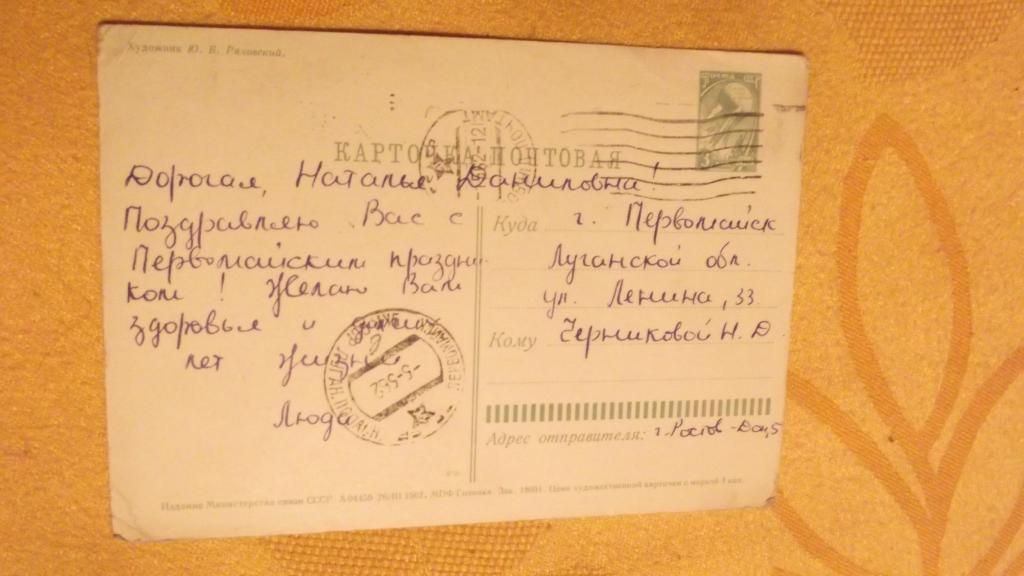 Художник Ю. В. Ряховский.
КАРТОЧКА ПОЧТОВАЯ
Дорогая, Наталья Даниловна!
Поздравляю Вас с
Первомайским праздни
ком! Желаю Вам
здоровья и долгих
лет жизни
Люда
Куда г. Первомайск
Луганской обл.
ул. Ленина, 33
Кому Черниковой Н. Д
Адрес отправителя: г. Ростов-Дон, 5
-5-5-62
Издание Министерства связи СССР Цена художественной карточки с маркой 4 коп.